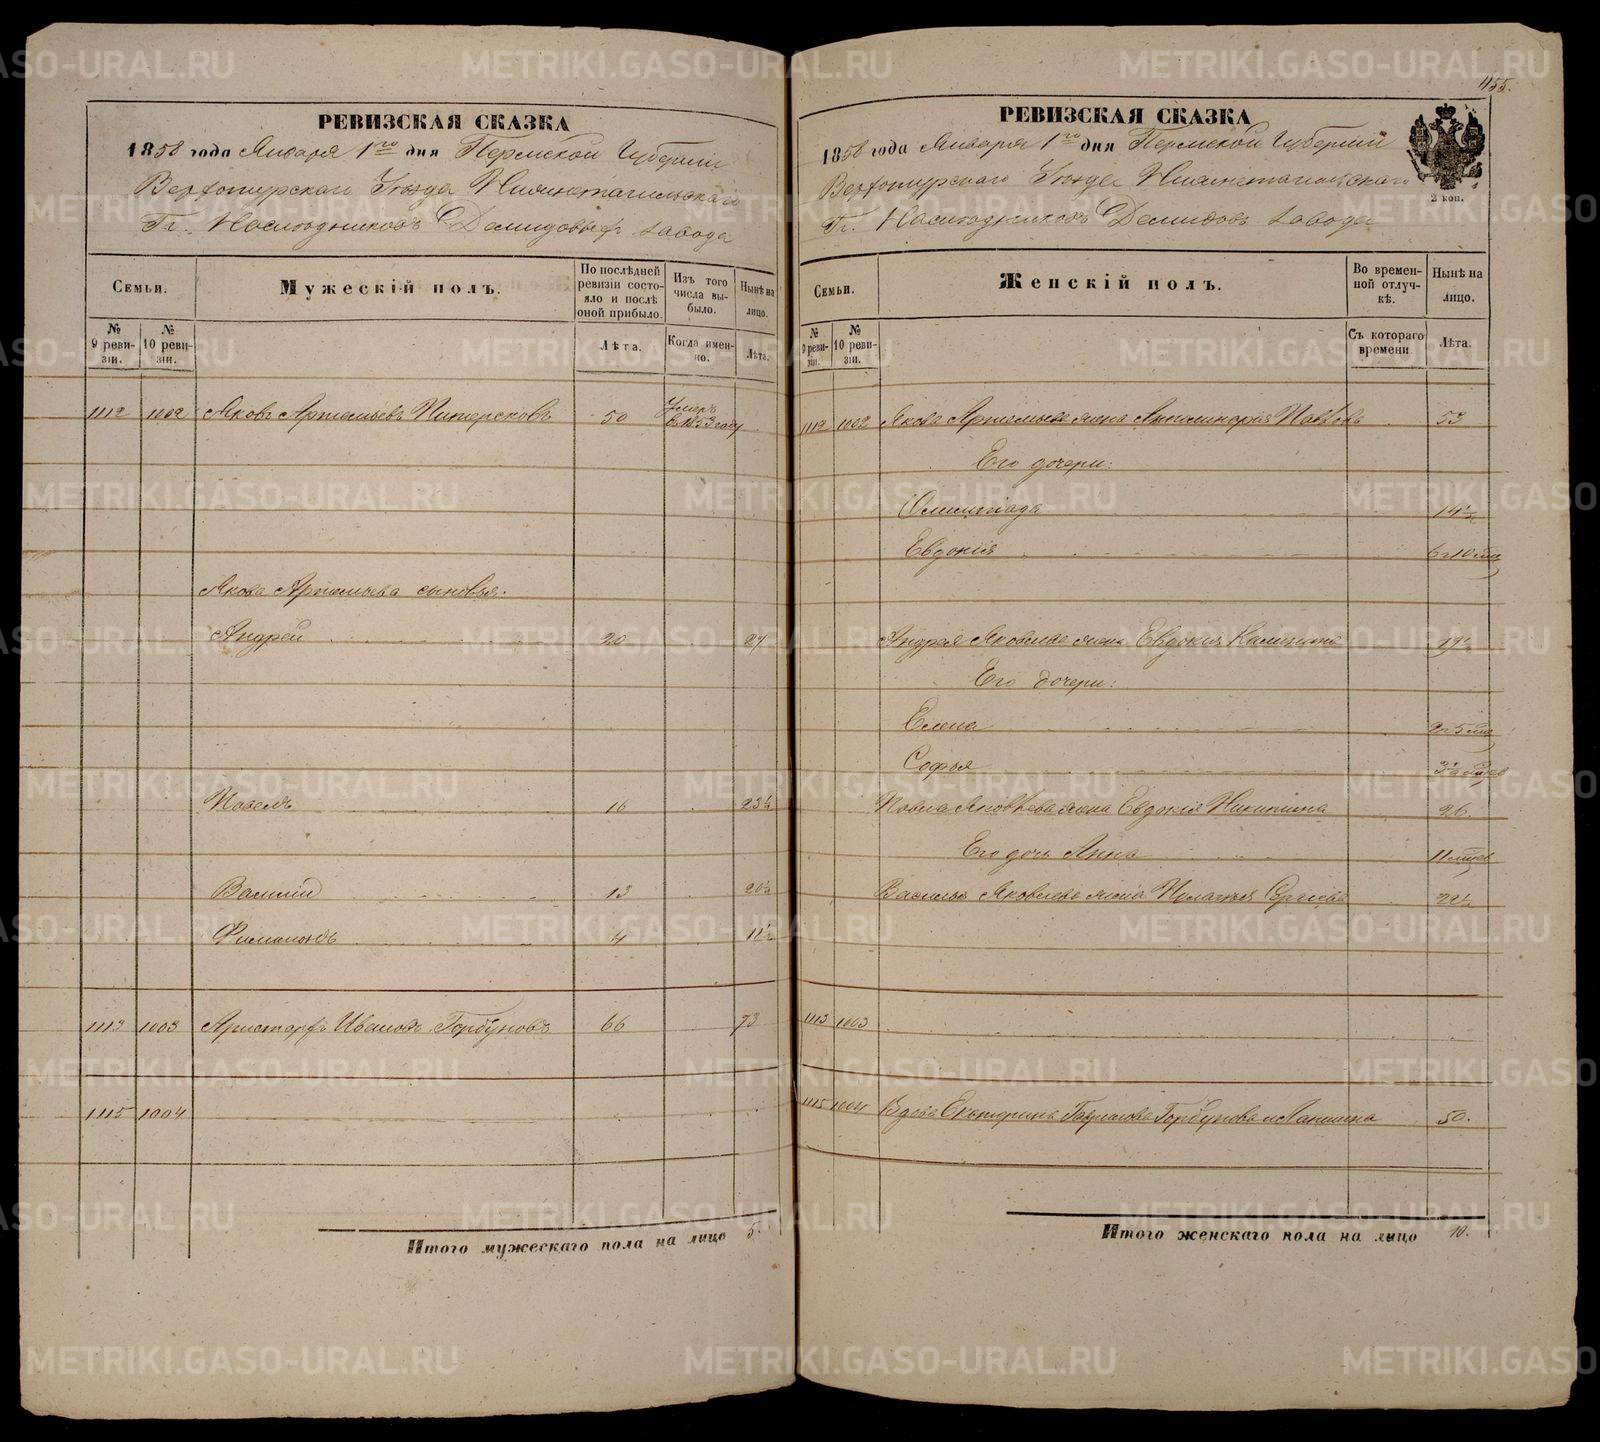 РЕВИЗСКАЯ СКАЗКА
1858 года Января 1го дня Пермской Губернии
Верхотурскаго Уѣзда Нижнетагильскаго
Гг. Наслѣдниковъ Демидовыхъ завода
Семьи.
Мужескій полъ.
По послѣдней ревизіи состояло и послѣ оной прибыло.
Изъ того числа выбыло.
Нынѣ на лицо.
№ 9 ревизіи.
№ 10 ревизіи.
Лѣта.
Когда именно.
Лѣта.
1112 1002 Яковъ Артемьевъ Питерсковъ 50 Умеръ въ 1853 году
Якова Артемьева сыновья.
Андрей 20 27
Павелъ 16 23½
Василій 13 20½
Филимонъ 4 11½
1113 1003 Аристархъ Ивановъ Горбуновъ 66 73
1115 1004
Итого мужескаго пола на лицо 5.
455.
РЕВИЗСКАЯ СКАЗКА
1858 года Января 1го дня Пермской Губерніи
Верхотурскаго Уѣзда Нижнетагильскаго
Гг. Наслѣдниковъ Демидовъ завода
2 коп.
Семьи.
Женскій полъ.
Во временной отлучкѣ.
Нынѣ на лицо.
№ 9 ревизіи.
№ 10 ревизіи.
Съ котораго времени.
Лѣта.
1112 1002 Якова Артемьева жена 53
Его дочери:
Олимпіада 14½
Евдокія
Андрея Яковлева жена Евдокія 29½
Его дочери:
Елена
Софья
Павла Яковлева жена Евдокія Никитина 26.
Его дочь Анна 11 мѣсяц
Василья Яковлева жена Пелагея Сергѣева 22½
1113 1003
1115 1004 Вдова Екатерина Гаврилова Горбунова и Лапшина 50.
Итого женскаго пола на лицо 10.
METRIKI.GASO-URAL.RU